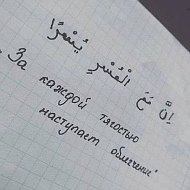 إِنَّ مَعَ الْعُسْرِ يُسْرًا
- За каждой тягостью
наступает облегчение"